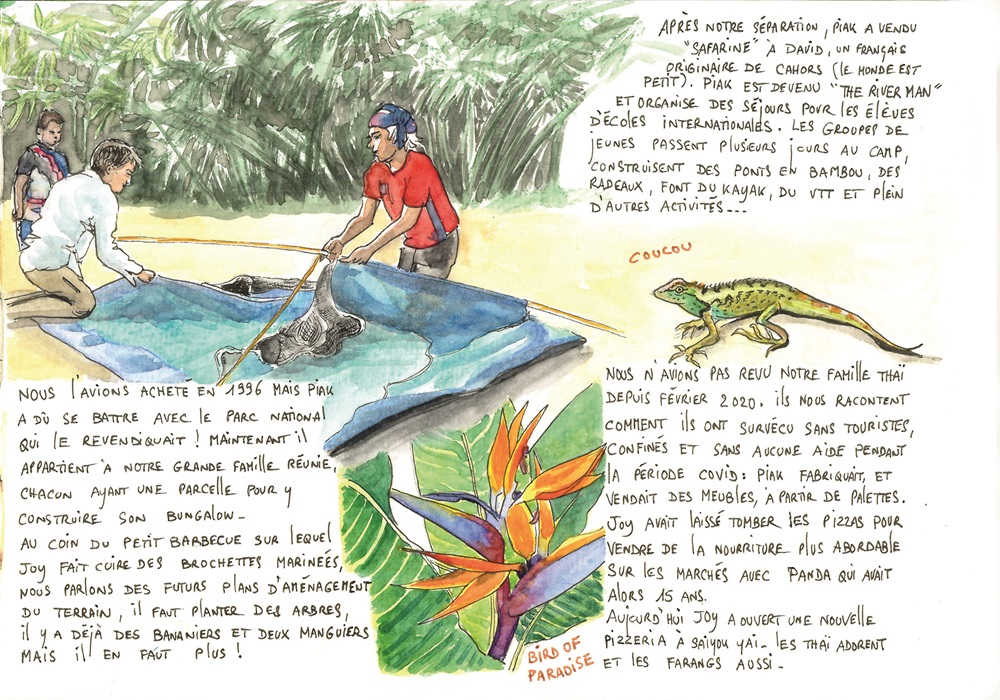 APRÈS NOTRE SÉPARATION, PIAK A VENDU
"SAFARINE" À DAVID, UN FRANÇAIS
ORIGINAIRE DE CAHORS (LE MONDE EST
PETIT). PIAK EST DEVENU "THE RIVER MAN"
ET ORGANISE DES SÉJOURS POUR LES ÉLÈVES
D'ÉCOLES INTERNATIONALES. LES GROUPES DE
JEUNES PASSENT PLUSIEURS JOURS AU CAMP,
CONSTRUISENT DES PONTS EN BAMBOU, DES
RADEAUX, FONT DU KAYAK, DU VTT ET PLEIN
D'AUTRES ACTIVITÉS...
COUCOU
NOUS L'AVIONS ACHETÉ EN 1996 MAIS PIAK
A DÛ SE BATTRE AVEC LE PARC NATIONAL
QUI LE REVENDIQUAIT ! MAINTENANT IL
APPARTIENT À NOTRE GRANDE FAMILLE RÉUNIE,
CHACUN AYANT UNE PARCELLE POUR Y
CONSTRUIRE SON BUNGALOW_
AU COIN DU PETIT BARBECUE SUR LEQUEL
JOY FAIT CUIRE DES BROCHETTES MARINEÉS,
NOUS PARLONS DES FUTURS PLANS D'AMÉNAGEMENT
DU TERRAIN, IL FAUT PLANTER DES ARBRES,
IL Y A DÉJÀ DES BANANIERS ET DEUX MANGUIERS
MAIS IL EN FAUT PLUS !
BIRD OF
PARADISE
NOUS N'AVIONS PAS REVU NOTRE FAMILLE THAÏ
DEPUIS FÉVRIER 2020. ILS NOUS RACONTENT
COMMENT ILS ONT SURVÉCU SANS TOURISTES,
CONFINÉS ET SANS AUCUNE AIDE PENDANT
LA PÉRIODE COVID : PIAK FABRIQUAIT, ET
VENDAIT DES MEUBLES, À PARTIR DE PALETTES.
JOY AVAIT LAISSÉ TOMBER LES PIZZAS POUR
VENDRE DE LA NOURRITURE PLUS ABORDABLE
SUR LES MARCHÉS AVEC PANDA QUI AVAIT
ALORS 15 ANS.
AUJOURD'HUI JOY A OUVERT UNE NOUVELLE
PIZZERIA À SAIYOU YAI_ LES THAÏ ADORENT
ET LES FARANGS AUSSI_